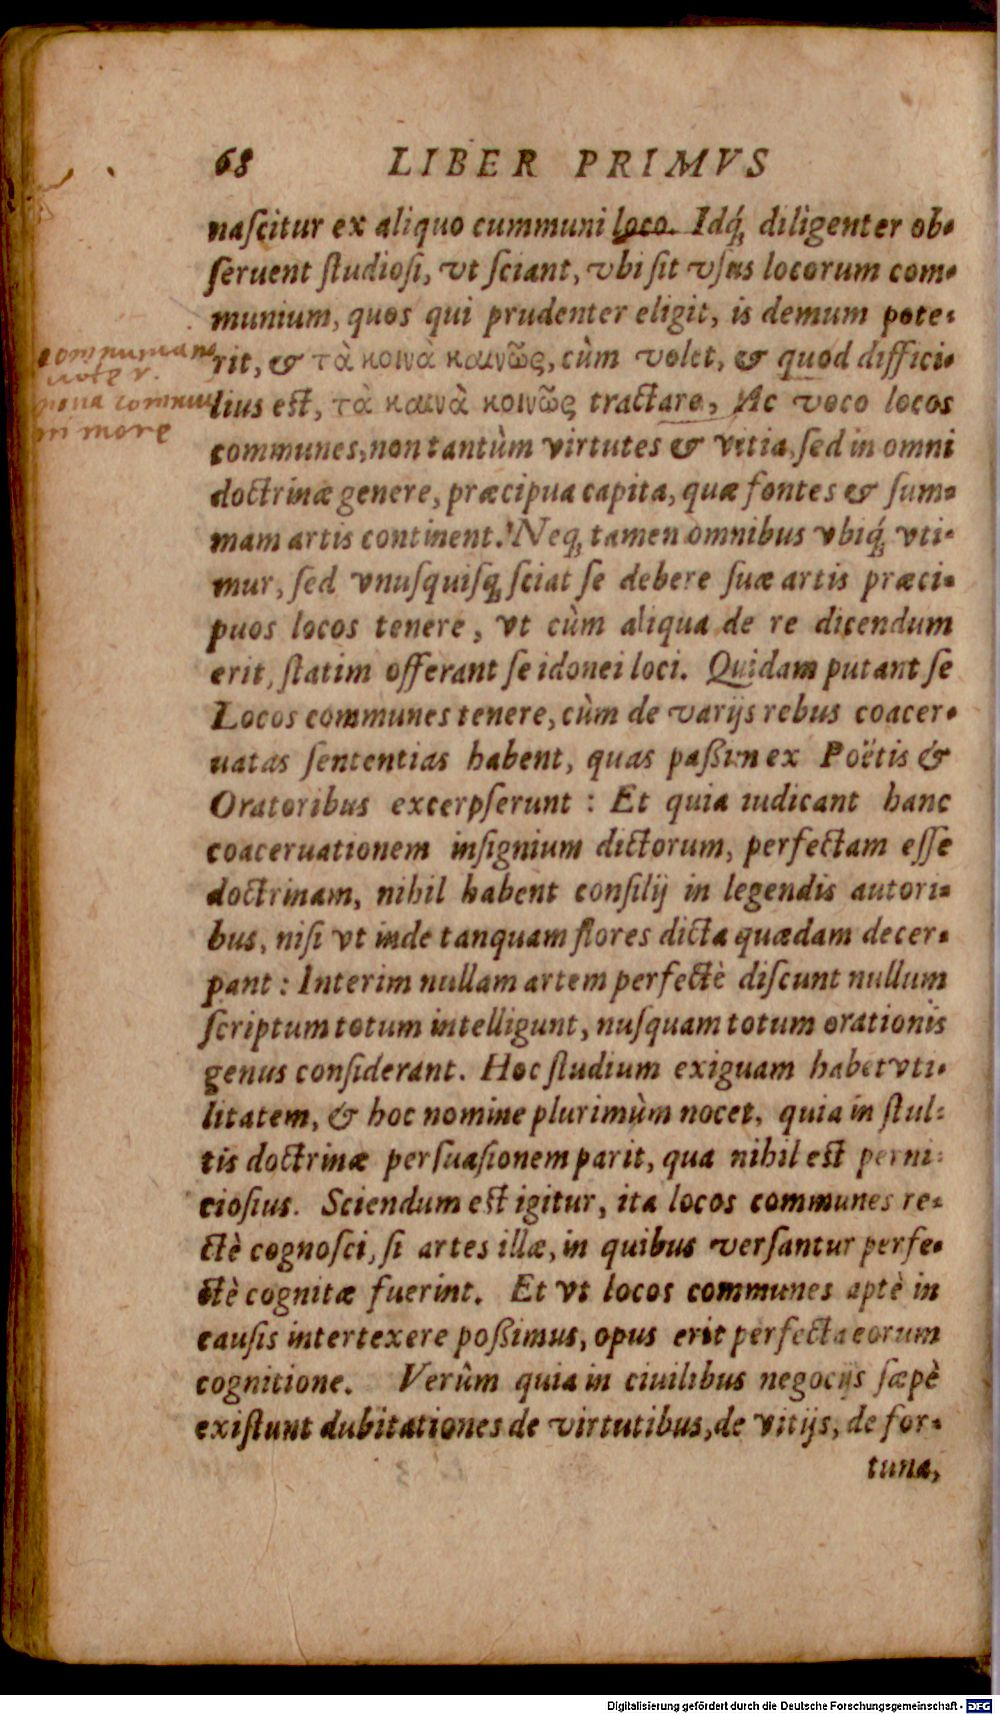 68 LIBER PRIMVS
naſcitur ex aliquo cummuni loco. Idq́; diligenter ob-
ſeruent ſtudioſi, vt ſciant, vbi ſit vſus locorum com-
munium, quos qui prudenter eligit, is demum pote-
rit, & τὰ κοινὰ καινῶς, cùm volet, & quod diffici-
lius eſt, τὰ καινὰ κοινῶς tractare, Ac voco locos
communes, non tantùm virtutes & vitia, ſed in omni
doctrinæ genere, præcipua capita, quæ fontes & ſum-
mam artis continent. Neq; tamen omnibus vbiq́; vti-
mur, ſed vnuſquiſq; ſciat ſe debere ſuæ artis præci-
puos locos tenere, vt cùm aliqua de re dicendum
erit, ſtatim offerant ſe idonei loci. Quidam putant ſe
Locos communes tenere, cùm de varijs rebus coacer-
uatas ſententias habent, quas paßim ex Poëtis &
Oratoribus excerpſerunt : Et quia iudicant hanc
coaceruationem inſignium dictorum, perfectam eſſe
doctrinam, nihil habent conſilij in legendis autori-
bus, niſi vt inde tanquam flores dicta quædam decer-
pant : Interim nullam artem perfectè diſcunt nullum
ſcriptum totum intelligunt, nuſquam totum orationis
genus conſiderant. Hoc ſtudium exiguam habet vti-
litatem, & hoc nomine plurimùm nocet, quia in ſtul-
tis doctrinæ perſuaſionem parit, qua nihil eſt perni-
cioſius. Sciendum eſt igitur, ita locos communes re-
ctè cognoſci, ſi artes illæ, in quibus verſantur perfe-
ctè cognitæ fuerint. Et vt locos communes aptè in
cauſis intertexere poßimus, opus erit perfecta eorum
cognitione. Verûm quia in ciuilibus negocijs ſæpè
exiſtunt dubitationes de virtutibus, de vitijs, de for-
tuna,
in more
Digitalisierung gefördert durch die Deutsche Forschungsgemeinschaft - DFG